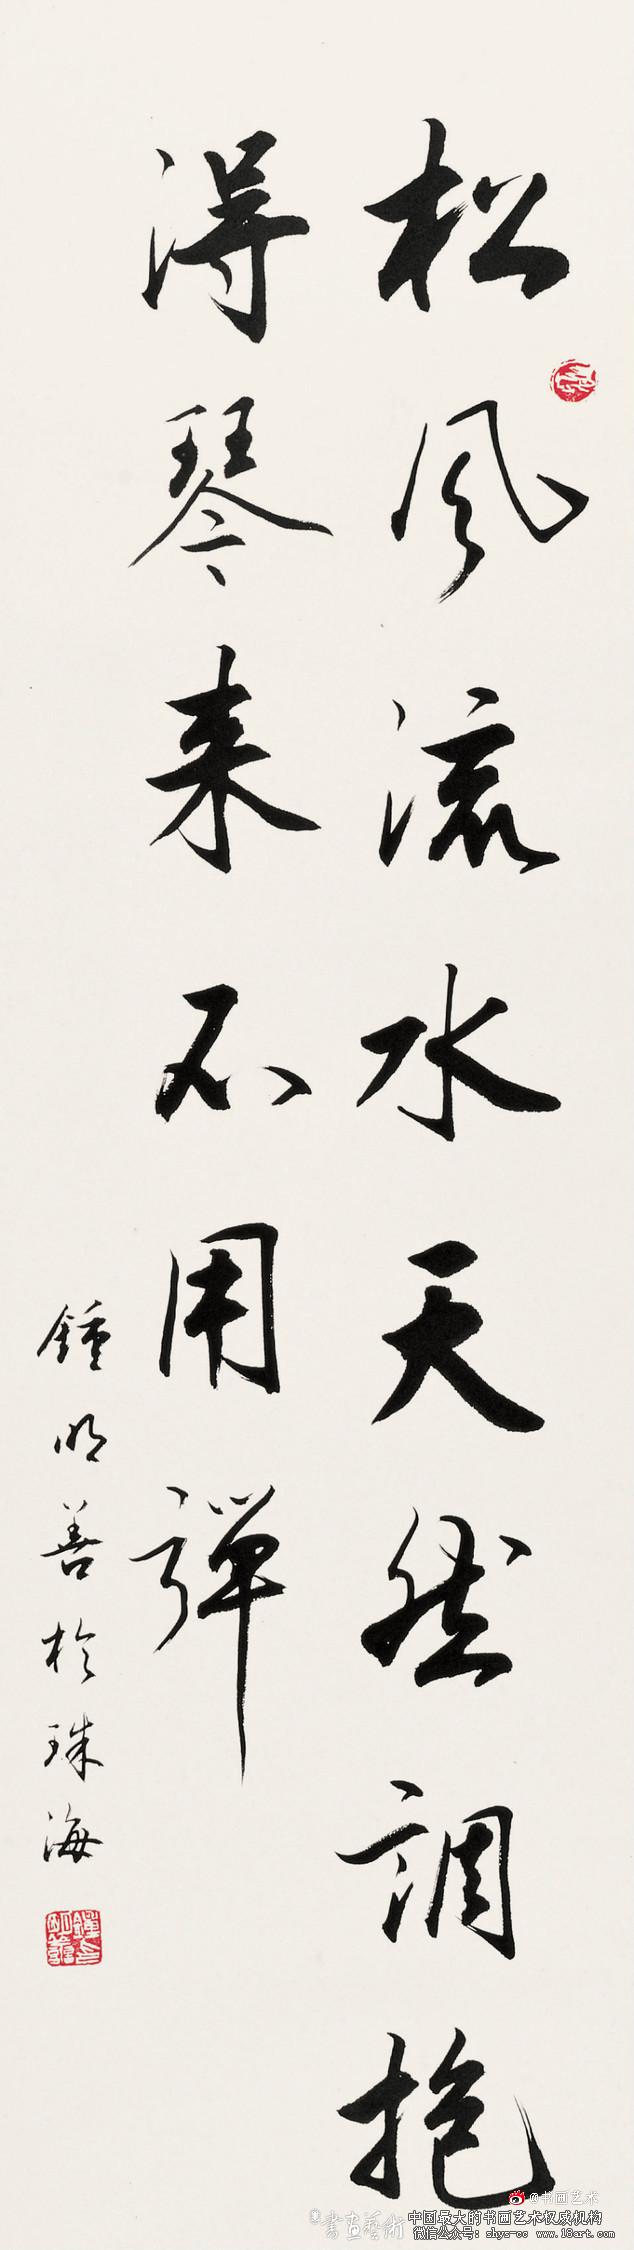 松風流水天然調抱
得琴来不用彈
鍾明善於珠海
@书画艺术
書畫藝術
中国最大的书画艺术权威机构
微信公众号：shys-cc www.18art.com